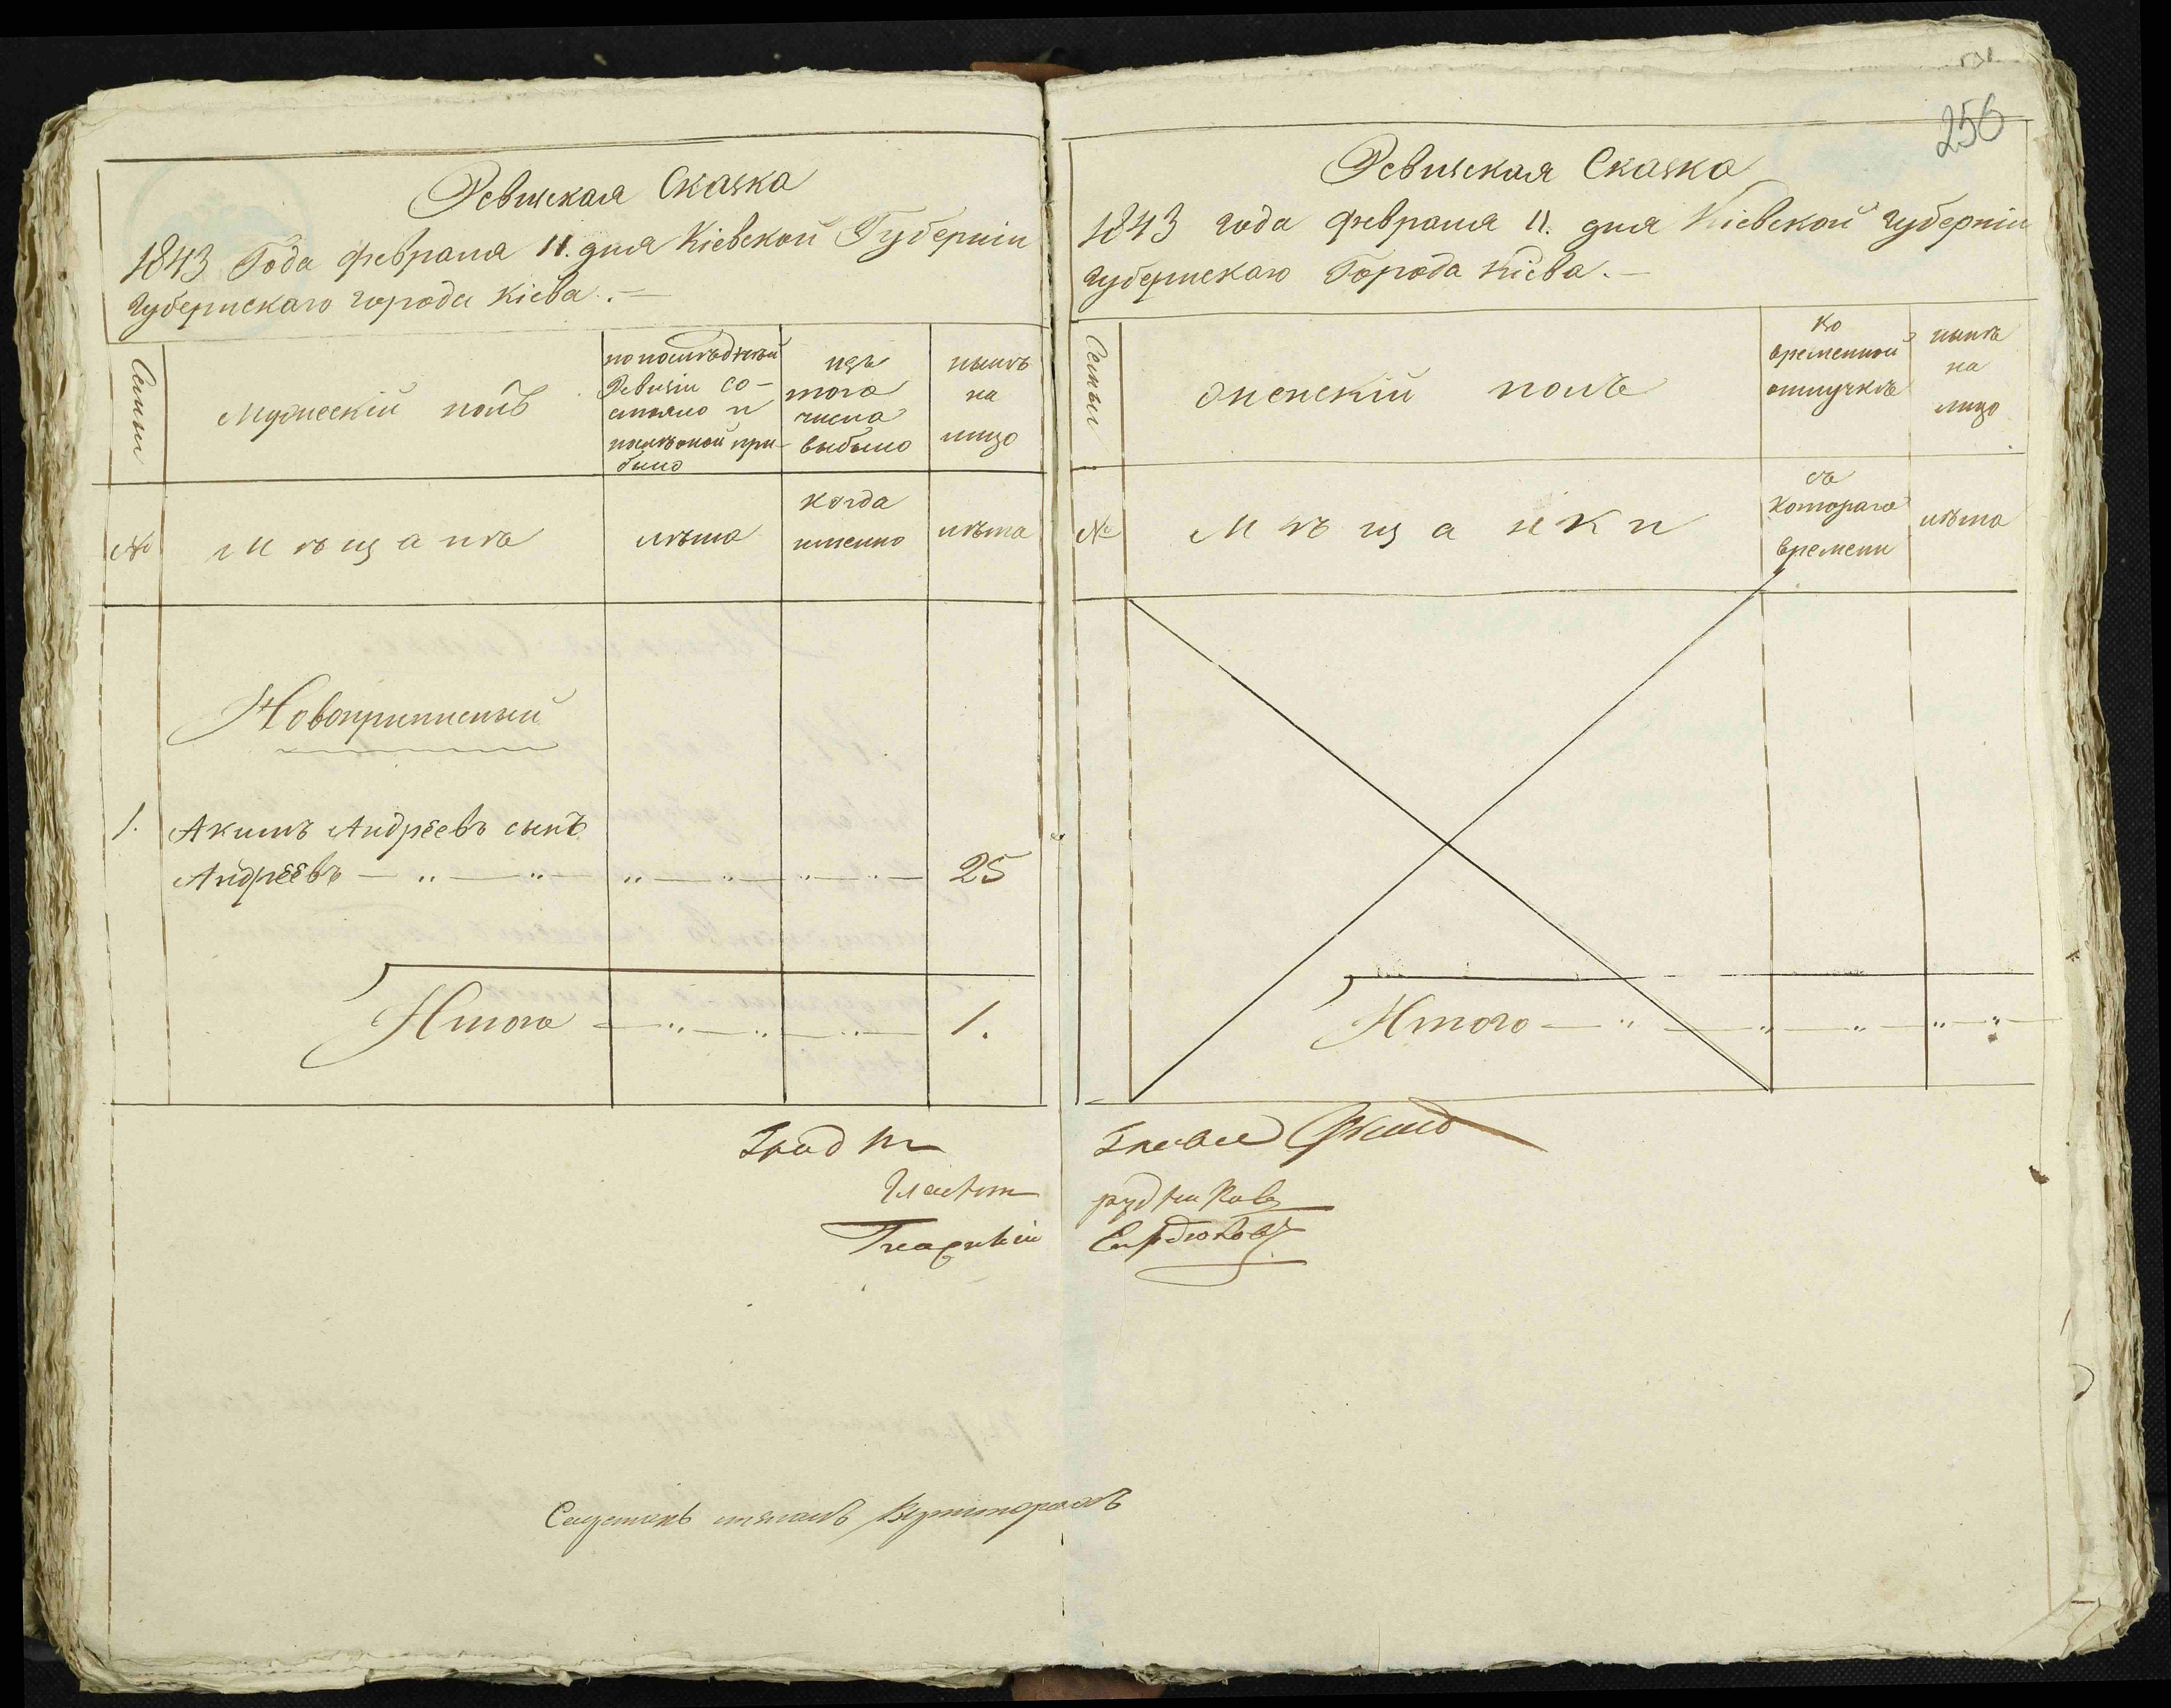 256
Ревизская Сказка
1843 Года февраля 11. дня Кіевской Губерніи
губернскаго города Кіева.
Семьи
Мужескій полъ
по послѣдней
Ревизіи со-
стояло и
послѣ оной при-
было
изъ
того
числа
выбыло
нынѣ
на
лицо
№
Мѣщанѣ
лѣта
когда
именно
лѣта
Новоприписный
1. Акимъ Андреевъ сынъ
Андреевъ — „ — „ — „ — „ — „ — „ — 25
Итого — „ — „ — „ — 1.
Ревизская Сказка
1843 года февраля 11. дня Кіевской губерніи
губернскаго Города Кіева.
Семьи
Женскій полъ
во
временной
отлучкѣ
нынѣ
на
лицо
№
Мѣщанки
съ
котораго
времени
лѣта
Итого — „ — „ — „ — „ — „ —
Град
Глава
Гласный
Рудниковъ
Гласный
Сердюковъ